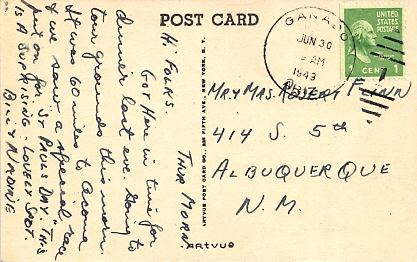 POST CARD
GANADO
JUN 30
AM
1949
UNITED
STATES
POSTAGE
1 CENT 1
THUR MORN.
Hi FOLKS.
Got Here in time for
dinner last eve. Going to
tour grounds this morn.
It was 60 miles to Acoma
& we saw a special race
put on for "St PAULS DAY." THIS
IS A SURPRISING - LOVELY SPOT.
BILL & NADINE
ARTVUE POST CARD CO., 225 FIFTH AVE., NEW YORK, N. Y.
ARTVUE
MR & MRS. ROBERT FLINN
414 S. 5th
ALBUQUERQUE
N.M.